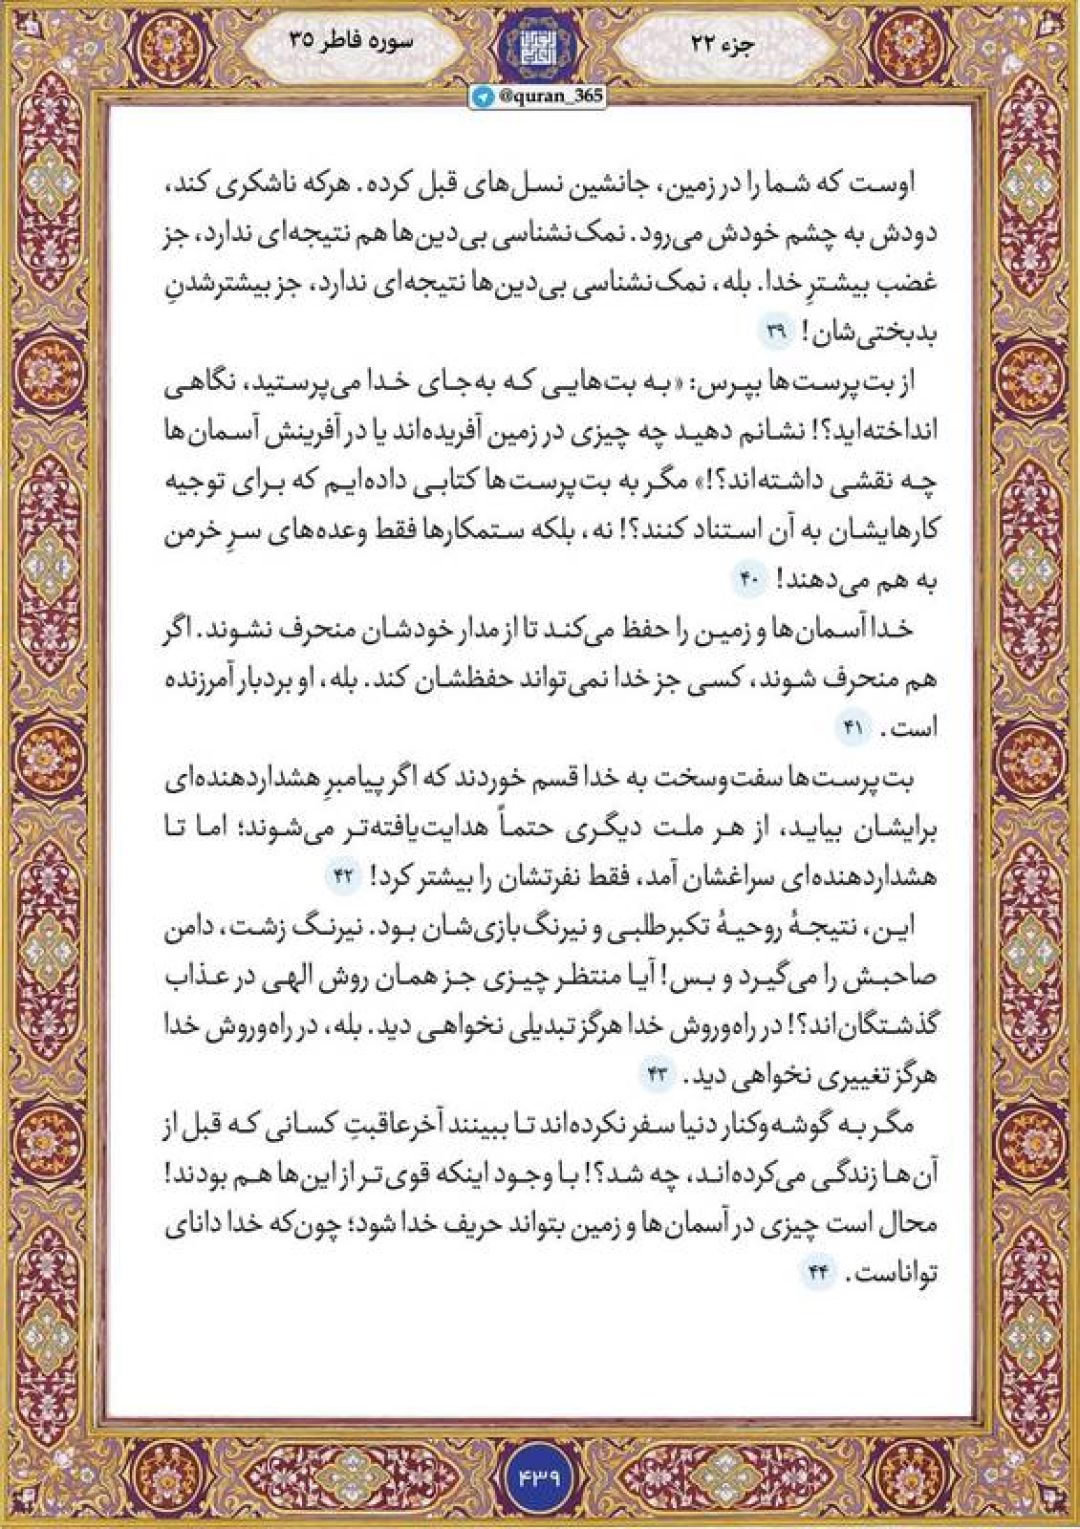 جزء ۲۲
سوره فاطر ۳۵
@quran_365
اوست که شما را در زمین، جانشین نسل‌های قبل کرده. هرکه ناشکری کند،
دودش به چشم خودش می‌رود. نمک‌نشناسی بی‌دین‌ها هم نتیجه‌ای ندارد، جز
غضب بیشترِ خدا. بله، نمک‌نشناسی بی‌دین‌ها نتیجه‌ای ندارد، جز بیشترشدنِ
بدبختی‌شان! ۳۹
از بت‌پرست‌ها بپرس: «به بت‌هایی که به‌جای خدا می‌پرستید، نگاهی
انداخته‌اید؟! نشانم دهید چه چیزی در زمین آفریده‌اند یا در آفرینش آسمان‌ها
چه نقشی داشته‌اند؟!» مگر به بت‌پرست‌ها کتابی داده‌ایم که برای توجیه
کارهایشان به آن استناد کنند؟! نه، بلکه ستمکارها فقط وعده‌های سرِ خرمن
به هم می‌دهند! ۴۰
خدا آسمان‌ها و زمین را حفظ می‌کند تا از مدار خودشان منحرف نشوند. اگر
هم منحرف شوند، کسی جز خدا نمی‌تواند حفظشان کند. بله، او بردبار آمرزنده
است. ۴۱
بت‌پرست‌ها سفت‌وسخت به خدا قسم خوردند که اگر پیامبرِ هشداردهنده‌ای
برایشان بیاید، از هر ملت دیگری حتماً هدایت‌یافته‌تر می‌شوند؛ اما تا
هشداردهنده‌ای سراغشان آمد، فقط نفرتشان را بیشتر کرد! ۴۲
این، نتیجهٔ روحیهٔ تکبرطلبی و نیرنگ‌بازی‌شان بود. نیرنگ زشت، دامن
صاحبش را می‌گیرد و بس! آیا منتظر چیزی جز همان روش الهی در عذاب
گذشتگان‌اند؟! در راه‌وروش خدا هرگز تبدیلی نخواهی دید. بله، در راه‌وروش خدا
هرگز تغییری نخواهی دید. ۴۳
مگر به گوشه‌وکنار دنیا سفر نکرده‌اند تا ببینند آخرعاقبتِ کسانی که قبل از
آن‌ها زندگی می‌کرده‌اند، چه شد؟! با وجود اینکه قوی‌تر از این‌ها هم بودند!
محال است چیزی در آسمان‌ها و زمین بتواند حریف خدا شود؛ چون‌که خدا دانای
تواناست. ۴۴
۴۳۹